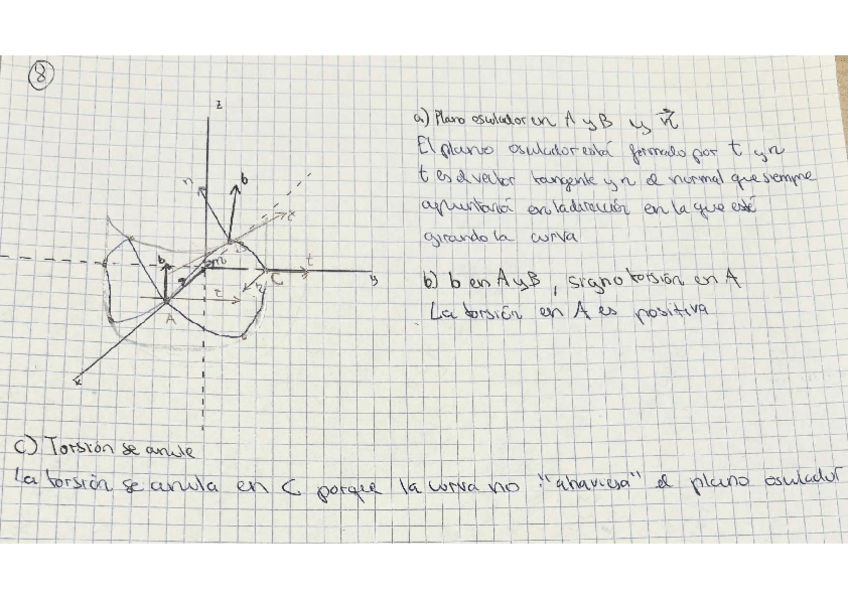 8
z
a) Plano osculador en A y B y n
El plano osculador está formado por t y n
t es el vector tangente y n el normal que siempre
apuntará en la dirección en la que esté
girando la curva
n
b
t
b
t
y
C
n
b) b en A y B, signo torsión en A
La torsión en A es positiva
A
x
c) Torsión se anule
La torsión se anula en C porque la curva no "atraviesa" el plano osculador